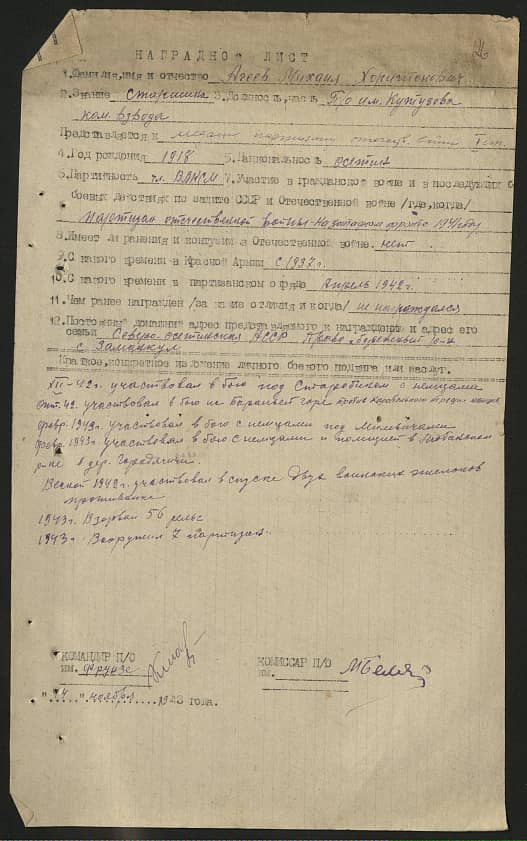 НАГРАДНОЙ ЛИСТ
1. Фамилия, имя и отчество Агеев Михаил Харитонович
2. Звание Старшина 3. Должность, часть П/о им. Кутузова
ком. взвода
Представляется к медали партизану отечеств. войны I ст.
4. Год рождения 1918 5. Национальность осетин
6. Партийность чл. ВЛКСМ 7. Участие в Гражданской войне и в последующих
боевых действиях по защите СССР и Отечественной войне /где, когда/
партизан отечественной войны на западном фронте 1941 году
8. Имеет ли ранения и контузии в Отечественной войне. нет
9. С какого времени в Красной Армии с 1937 г.
10. С какого времени в партизанском отряде Апрель 1942 г.
11. Чем ранее награжден /за какие отличия и когда/ не награждался
12. Постоянный домашний адрес представляемого к награждению и адрес его
семьи Северо-осетинская АССР Право бережный р-н
с. Заманкул
Краткое, конкретное изложение личного боевого подвига или заслуг.
XII-42 г. участвовал в бою под Старобином с немцами
Окт. 42. участвовал в бою на бараньей горе
февр. 1942 г. участвовал в бою с немцами под
февр. 1943 г. участвовал в бою с немцами и полицией в
р-не д. дер.
Весной 1942 г. участвовал в спуске двух воинских эшелонов
противника
1943 г. Взорвал 56 рельс
1943 г. Вооружил 7 партизан.
КОМАНДИР П/О
им. Фрунзе
КОМИССАР П/О
им.
"24" ноября 1943 года.